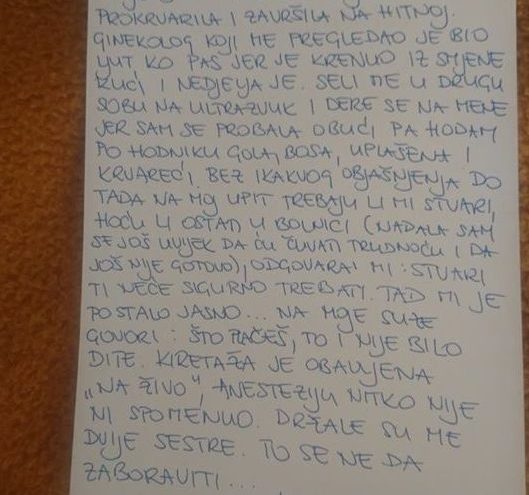 PROKRVARILA I ZAVRŠILA NA HITNOJ.
GINEKOLOG KOJI ME PREGLEDAO JE BIO
LJUT KO PAS JER JE KRENUO IZ SMJENE
KUĆI I NEDJELJA JE. SELI ME U DRUGU
SOBU NA ULTRAZVUK I DERE SE NA MENE
JER SAM SE PROBALA OBUĆI PA HODAM
PO HODNIKU GOLA, BOSA, UPLAŠENA I
KRVAREĆI, BEZ IKAKVOG OBJAŠNJENJA DO
TADA NA MOJ UPIT TREBAJU LI MI STVARI,
HOĆU LI OSTATI U BOLNICI (NADALA SAM
SE JOŠ UVIJEK DA ĆU ČUVATI TRUDNOĆU I DA
JOŠ NIJE GOTOVO), ODGOVARA MI: STVARI
TI NEĆE SIGURNO TREBATI. TAD MI JE
POSTALO JASNO... NA MOJE SUZE
GOVORI: ŠTO PLAČEŠ, TO I NIJE BILO
DITE. KIRETAŽA JE OBAVLJENA
„NA ŽIVO", ANESTEZIJU NITKO NIJE
NI SPOMENUO. DRŽALE SU ME
DVIJE SESTRE. TO SE NE DA
ZABORAVITI...